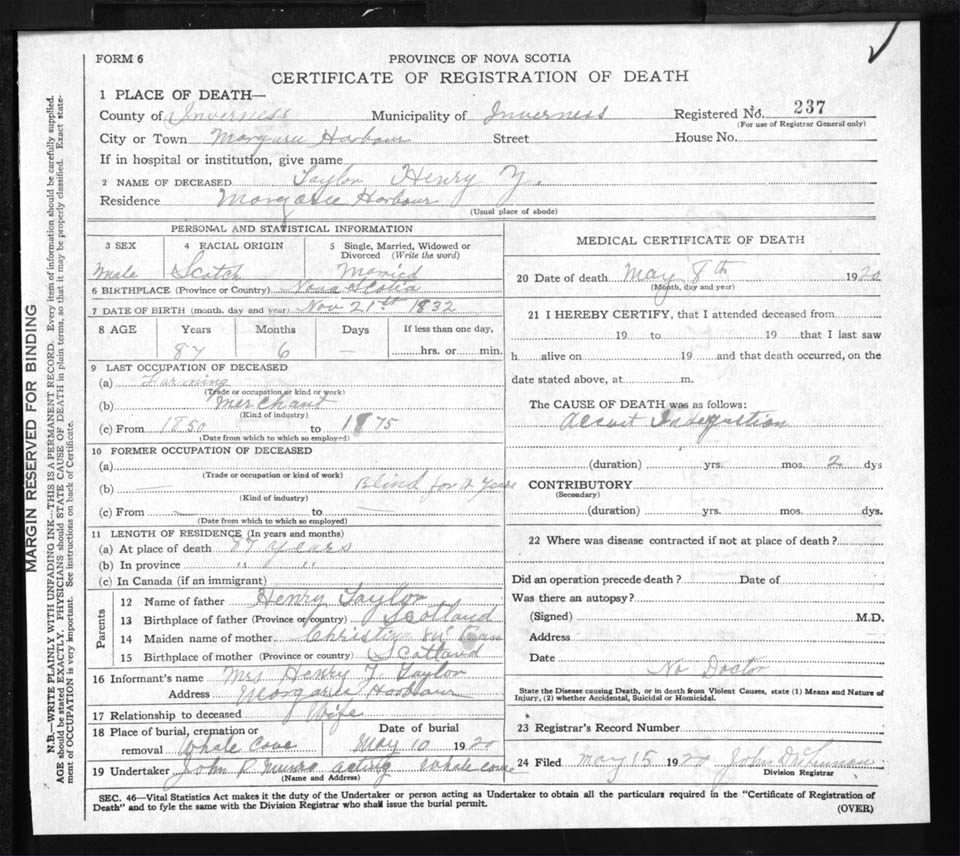 FORM 6
PROVINCE OF NOVA SCOTIA
CERTIFICATE OF REGISTRATION OF DEATH
1 PLACE OF DEATH—
County of Inverness Municipality of Inverness Registered No. 237
(For use of Registrar General only)
City or Town Margaree Harbour Street House No.
If in hospital or institution, give name
2 NAME OF DECEASED Taylor Henry Y.
Residence Margaree Harbour
(Usual place of abode)
PERSONAL AND STATISTICAL INFORMATION
3 SEX 4 RACIAL ORIGIN 5 Single, Married, Widowed or Divorced (Write the word)
Male Scotch Married
6 BIRTHPLACE (Province or Country) Nova Scotia
7 DATE OF BIRTH (month, day and year) Nov 21st 1832
8 AGE Years Months Days If less than one day,
87 6 — hrs. or min.
9 LAST OCCUPATION OF DECEASED
(a) Farming
(Trade or occupation or kind or work)
(b) Merchant
(Kind of industry)
(c) From 1850 to 1875
(Date from which to which so employed)
10 FORMER OCCUPATION OF DECEASED
(a)
(Trade or occupation or kind of work)
(b) — Blind for
(Kind of industry)
(c) From — to —
(Date from which to which so employed)
11 LENGTH OF RESIDENCE (In years and months)
(a) At place of death 87 years
(b) In province " "
(c) In Canada (if an immigrant)
Parents
12 Name of father Henry Taylor
13 Birthplace of father (Province or country) Scotland
14 Maiden name of mother Christina
15 Birthplace of mother (Province or country) Scotland
16 Informant's name Mrs Henry Y. Taylor
Address Margaree Harbour
17 Relationship to deceased Wife
18 Place of burial, cremation or Date of burial
removal Whale Cove May 10 1920
19 Undertaker John P. Munro acting Whale Cove
(Name and Address)
MEDICAL CERTIFICATE OF DEATH
20 Date of death May 8th 1920
(Month, day and year)
21 I HEREBY CERTIFY, that I attended deceased from
19 to 19 that I last saw
h alive on 19 and that death occurred, on the
date stated above, at m.
The CAUSE OF DEATH was as follows:
Accut Indegistion
(duration) yrs. mos. 2 dys
CONTRIBUTORY
(Secondary)
(duration) yrs. mos. dys.
22 Where was disease contracted if not at place of death?
Did an operation precede death? Date of
Was there an autopsy?
(Signed) M.D.
Address
Date
No Doctor
State the Disease causing Death, or in death from Violent Causes, state (1) Means and Nature of
Injury, (2) whether Accidental, Suicidal or Homicidal.
23 Registrar's Record Number
24 Filed May 15 1920 John
Division Registrar
SEC. 46—Vital Statistics Act makes it the duty of the Undertaker or person acting as Undertaker to obtain all the particulars required in the "Certificate of Registration of
Death" and to fyle the same with the Division Registrar who shall issue the burial permit.
(OVER)
MARGIN RESERVED FOR BINDING
N.B.—WRITE PLAINLY WITH UNFADING INK—THIS IS A PERMANENT RECORD. Every item of information should be carefully supplied.
AGE should be stated EXACTLY. PHYSICIANS should STATE CAUSE OF DEATH in plain terms, so that it may be properly classified. Exact state-
ment of OCCUPATION is very important. See instructions on back of Certificate.